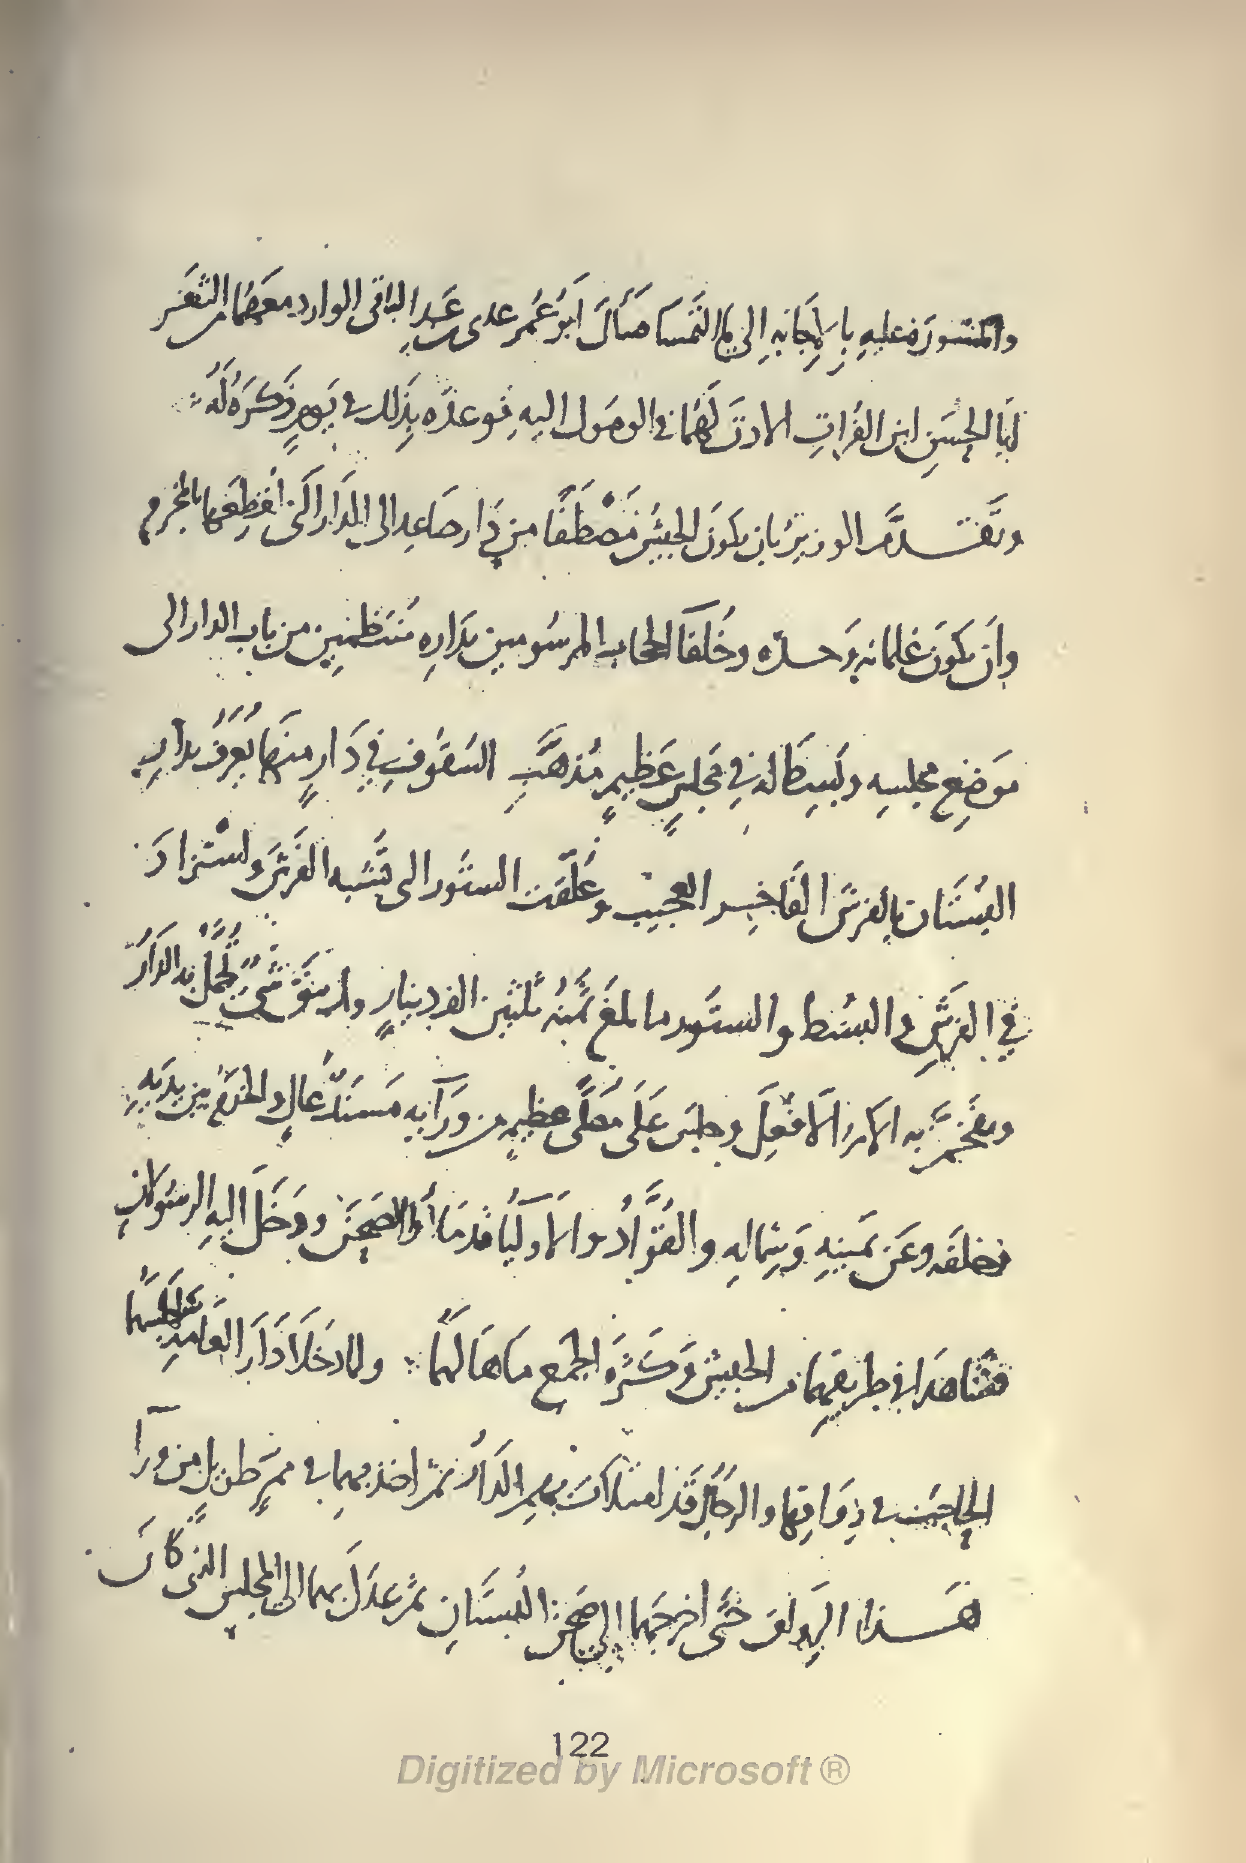 والمشورة عليه بالاجابة الى ما التمسا سأل أبو عمر عدى بن عبد الباقى الوارد معهما من الثغر
أبا الحسن ابن الفرات الاذن لهما فى الوصول اليه فوعده بذلك فى يوم ذكره له
وتقدم الوزير بان يكون الجيش مصطفا من دار صاعد الى الدار التى أقطعها بالمخرم
وان يكون غلمانه وحده وخلفا الحجاب المرسومين بداره منتظمين من باب الدار الى
موضع مجلسه وبسط له فى مجلس عظيم مذهب السقوف فى دار منها يعرف بدار
البستان بالفرش الفاخر العجيب وعلقت الستور التى تشبه الفرش واستزاد
فى الفرش و البسط والستور ما بلغ ثمنه ثلثين الف دينار ولم يبق شئ يجمل به الدار
ويفخم به الامر الا فعل وجلس على مصلى عظيم من ورآيه مسند عال والخدم بين يديه
وخلفه وعن يمينه وشماله والقواد والاوليا قد ملأوا الصحن ودخل اليه الرسولان
فشاهدا فى طريقهما من الجيش وكثرة الجمع ما هالهما ولما دخلا دار العامة اجلسهما
الحاجب فى رواقها والرجال قد امتلأت بهم الدار ثم اخذ بهما فى ممر طويل من ورآ
هذا الرواق حتى اخرجهما الى صحن البستان ثم عدل بهما الى المجلس الذى كان
122
Digitized by Microsoft ®